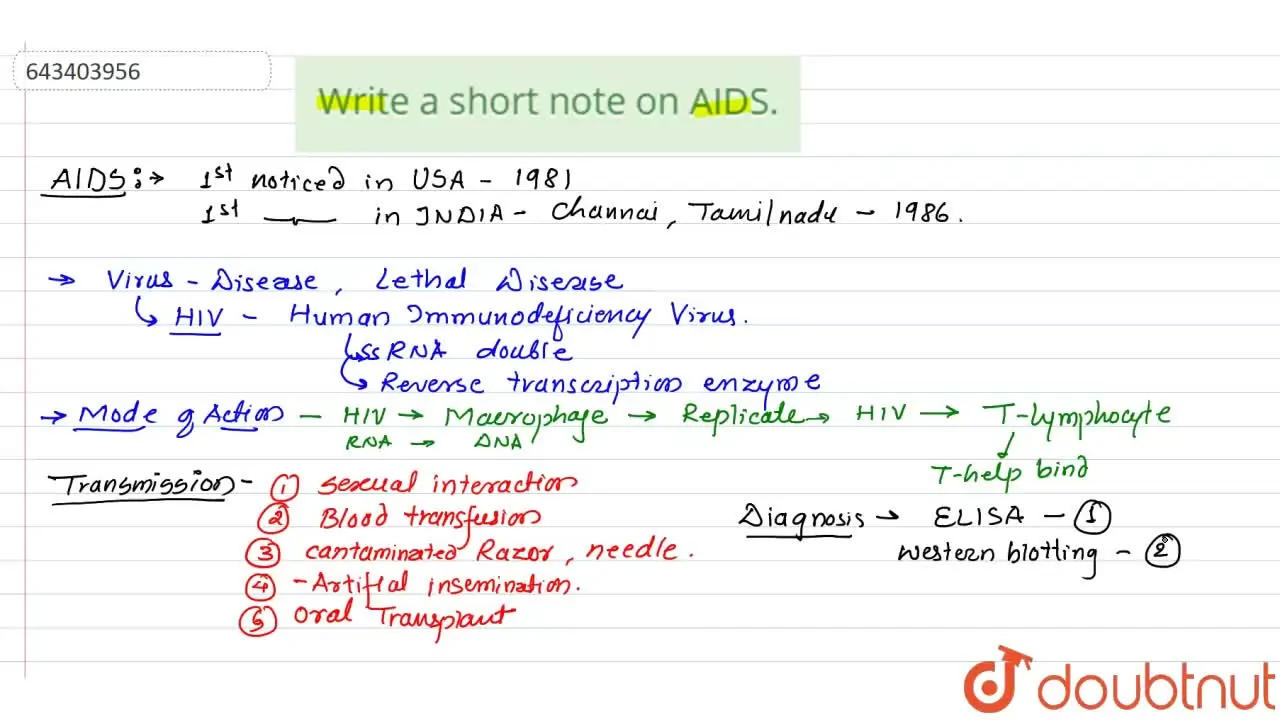 643403956
Write a short note on AIDS.
AIDS:→ 1st noticed in USA - 1981
1st —— in INDIA - Channai, Tamilnadu - 1986.
→ Virus - Disease, Lethal Disease
↳ HIV - Human Immunodeficiency Virus.
↳ ss RNA double
↳ Reverse transcription enzyme
→ Mode of Action - HIV → Macrophage → Replicate → HIV → T-lymphocyte
RNA → DNA
T-help bind
Transmission - ① Sexual interaction
② Blood transfusion
③ cantaminated Razor, needle.
④ - Artifial insemination.
⑤ Oral Transplant
Diagnosis → ELISA - ①
Western blotting - ②
doubtnut